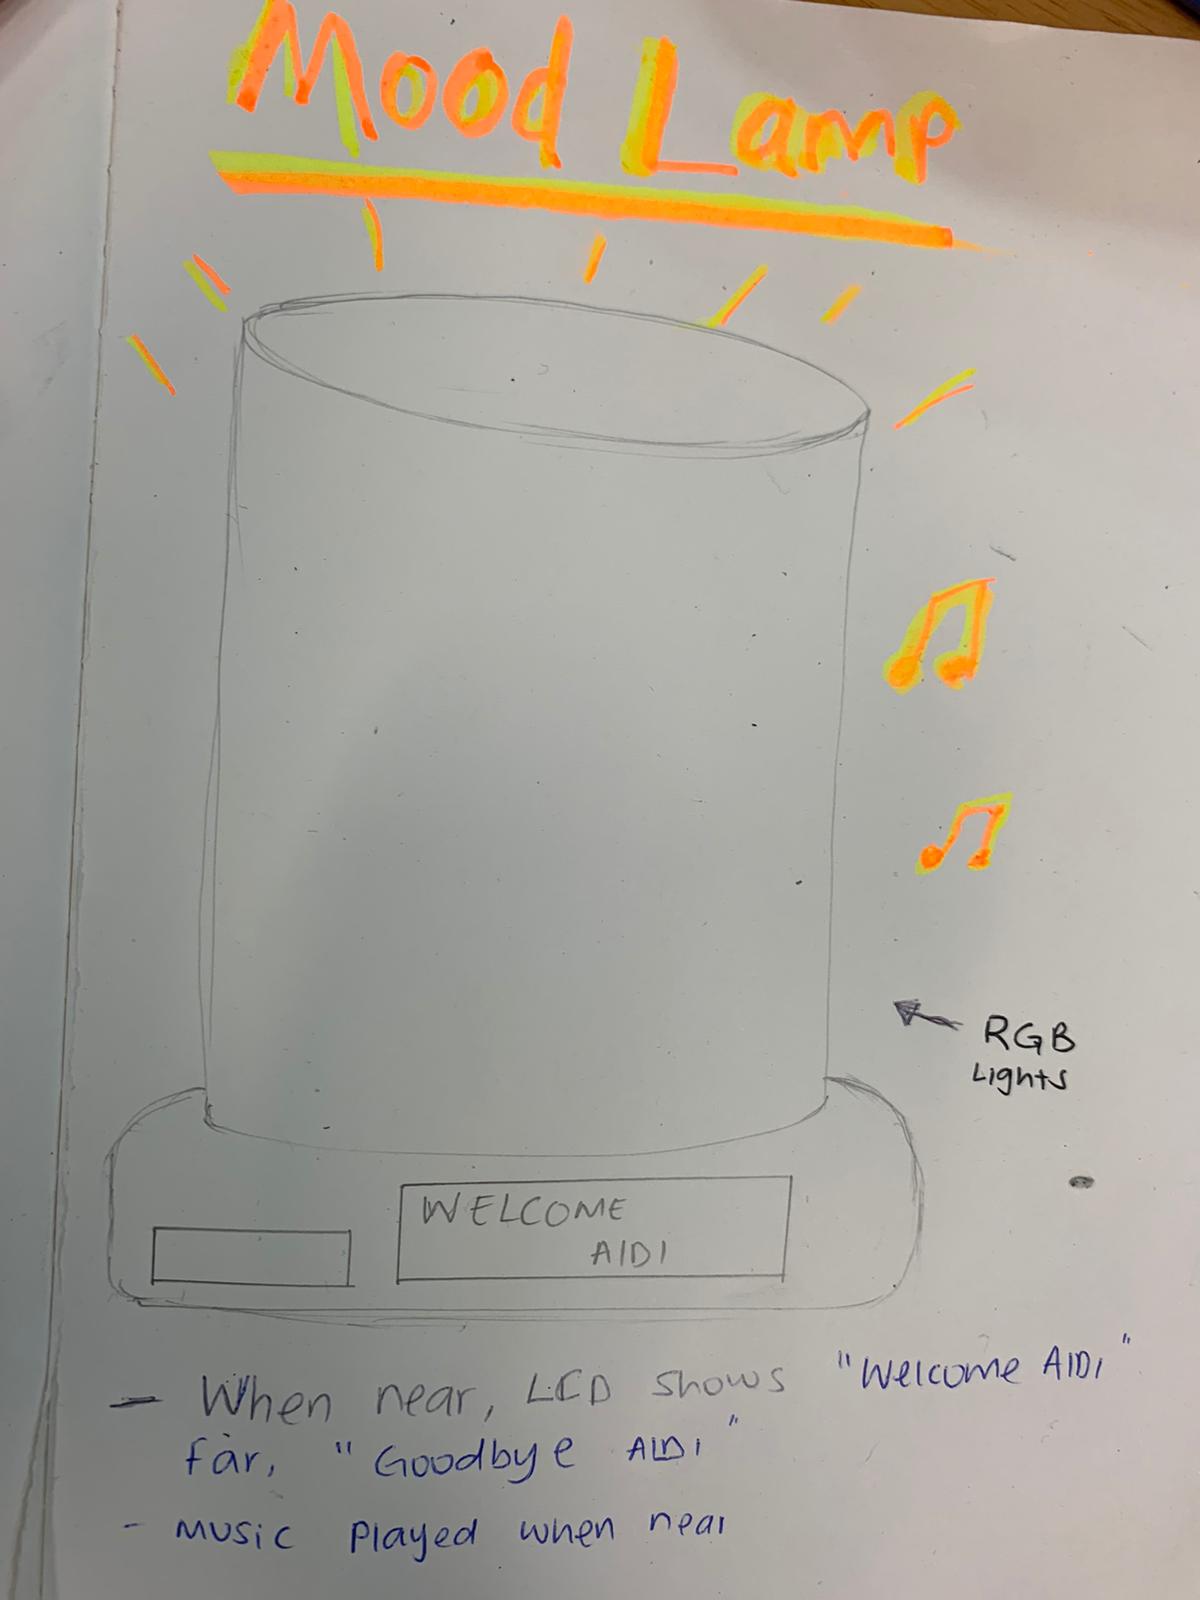 Mood Lamp
RGB
Lights
WELCOME
AIDI
- When near, LCD shows "Welcome AIDI"
far, "Goodbye AIDI"
- Music played when near